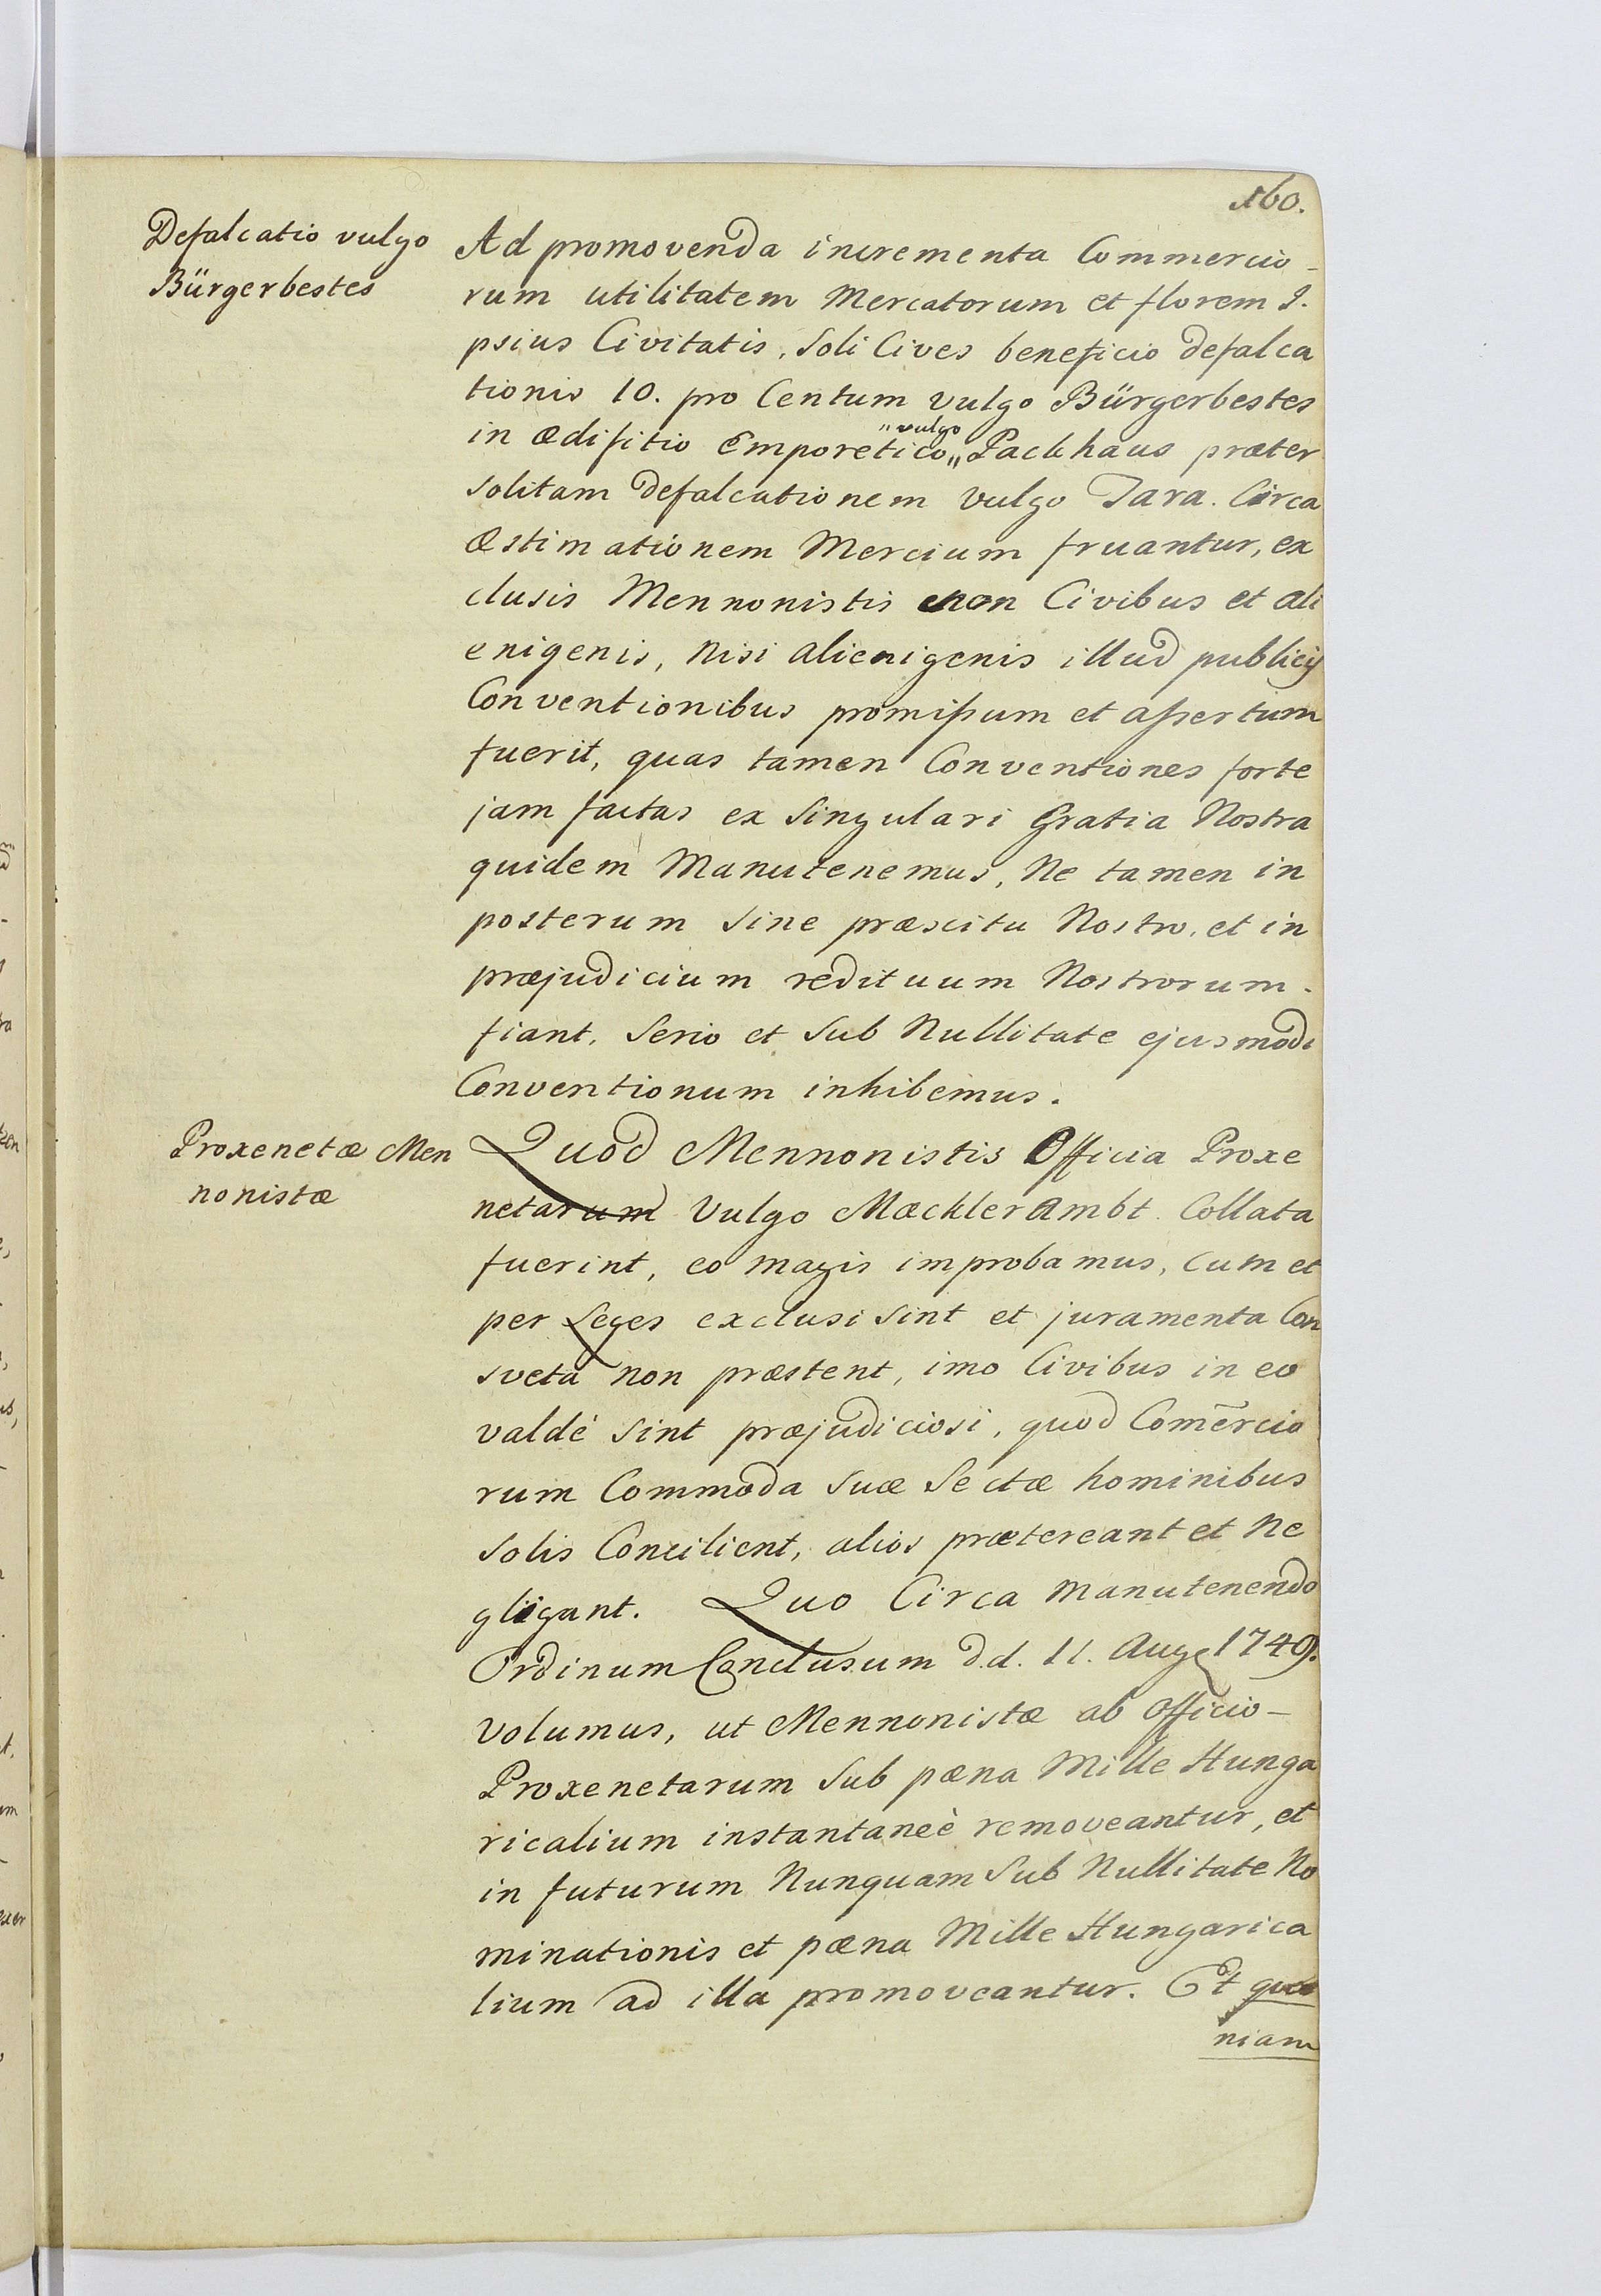 160.
Defalcatio vulgo
Bürgerbestes
Ad promovenda incrementa Commercio-
rum utilitatem Mercatorum et florem I.
psius Civitatis, Soli Cives beneficio defalca
tionis 10. pro Centum vulgo Bürgerbestes
in ædifitio Emporetico „vulgo„ Packhaus præter
solitam defalcationem vulgo Tara. Circa
Æstimationem Mercium fruantur, ex
clusis Mennonistis non Civibus et ali
enigenis, nisi alienigenis illud publicis
Conventionibus promissum et assertum
fuerit, quas tamen Conventiones forte
jam factas ex Singulari Gratia Nostra
quidem Manutenemus, Ne tamen in
posterum Sine præscitu Nostro, et in
præjudicium redituum Nostrorum-
fiant, Serio et Sub Nullitate ejusmodi
Conventionum inhibemus.
Proxenetæ Men
nonistæ
Quod Mennonistis Officia Proxe
netarum Vulgo Mæckler Ambt. Collata
fuerint, eo magis improbamus, cum et
per Leges exclusi sint et juramenta Con
sveta non præstent, imo Civibus in eo
valdè sint præjudiciosi, quod Com̃ercio
rum Commoda Suæ Sectæ hominibus
Solis Concilient, alios prætereant et Ne
gligant. Quo Circa manutenendo
Ordinum Conclusum d.d. 11. Aug 1749.
volumus, ut Mennonistæ ab Officio-
Proxenetarum Sub pæna Mille Hunga
ricalium instantaneè removeantur, et
in futurum Nunquam Sub Nullitate No
minationis et pæna Mille Hungarica
lium ad illa promoveantur. Et quo
niam